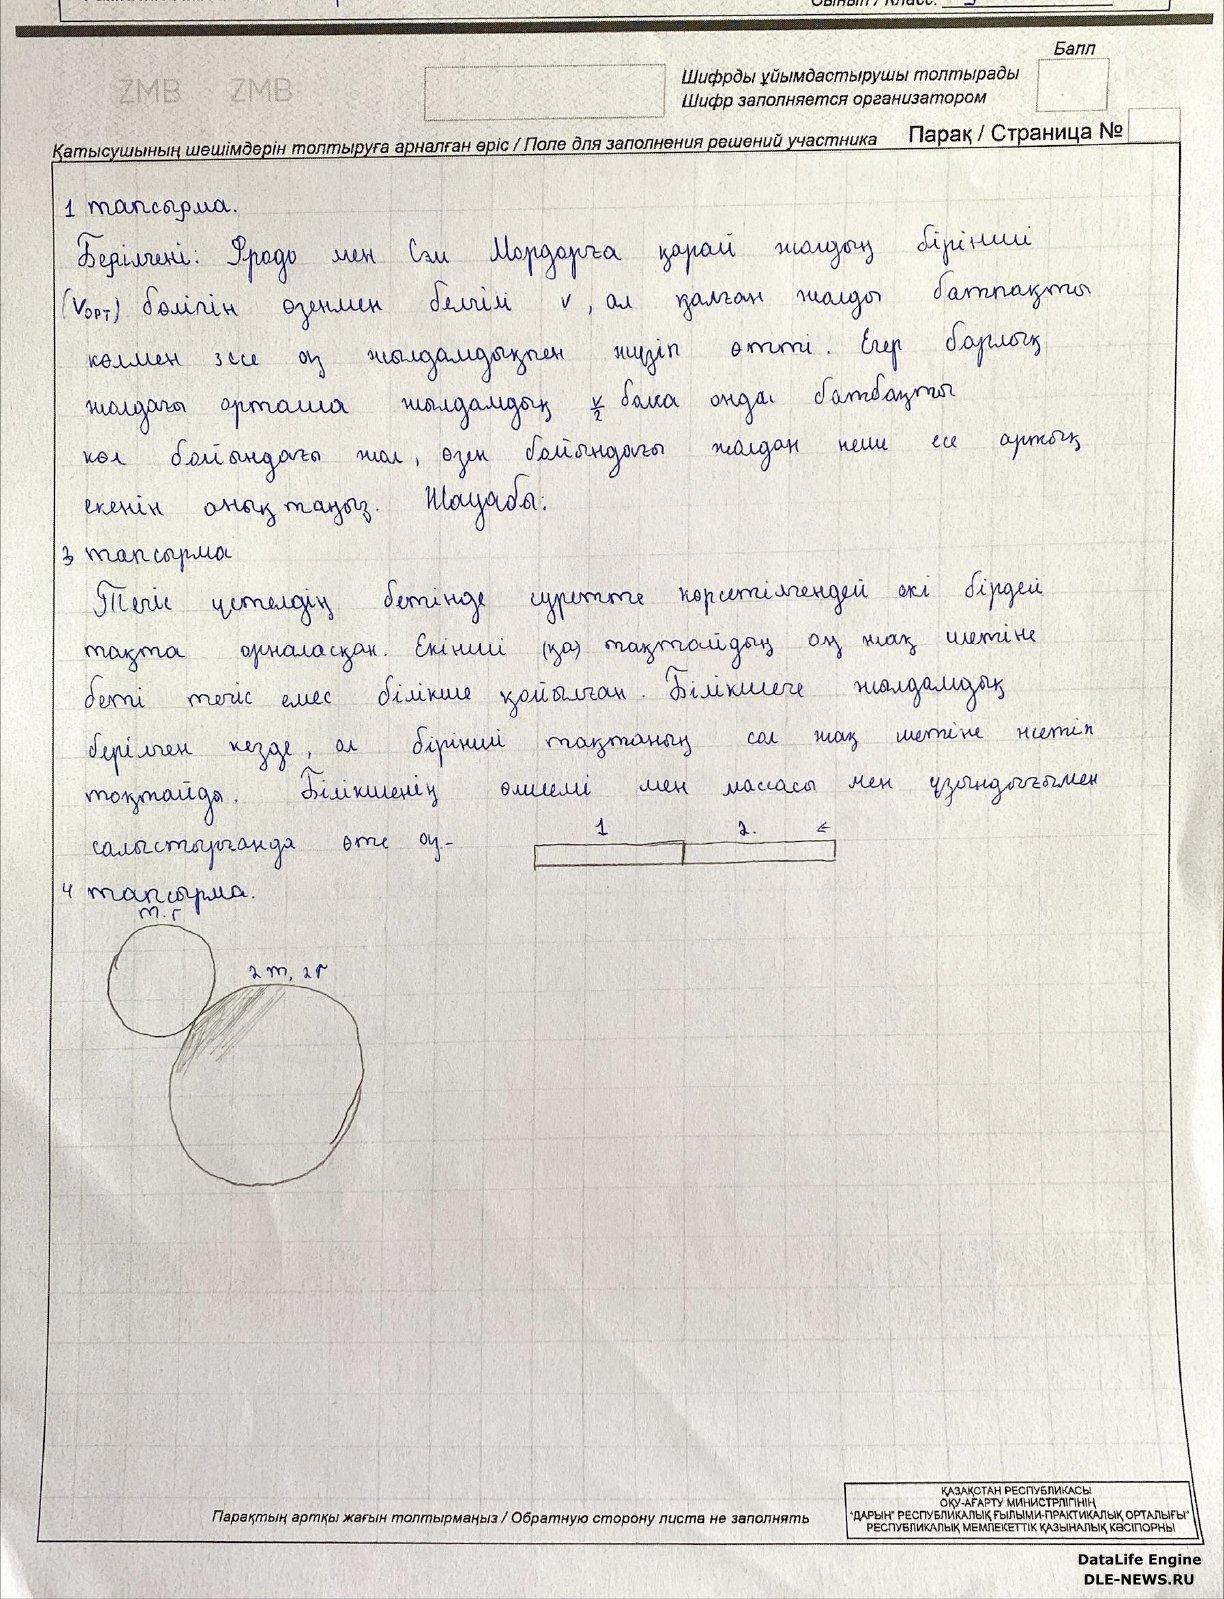 Сынып / Класс:
ZMB ZMB
Балл
Шифрды ұйымдастырушы толтырады
Шифр заполняется организатором
Қатысушының шешімдерін толтыруға арналған өріс / Поле для заполнения решений участника
Парақ / Страница №
1 тапсырма.
Берілгені: Фродо мен Сэм Мордорға қарай жолдың бірінші
(VОРТ) бөлігін өзенмен белгілі v, ал қалған жолды батпақты
көлмен 3 есе аз жылдамдықпен жүзіп өтті. Егер барлық
жолдағы орташа жылдамдық v/2 болса онда батбақты
көл бойындағы жол, өзен бойындағы жолдан неше есе артық
екенін анықтаңыз. Жауабы:
3 тапсырма
Тегіс үстелдің бетінде суретте көрсетілгендей екі бірдей
тақта орналасқан. Екінші (қа) тақтайдың оң жақ шетіне
беті тегіс емес білікше қойылған. Білікшеге жылдамдық
берілген кезде, ол бірінші тақтаның сол жақ шетіне жетіп
тоқтайды. Білікшенің өлшемі мен массасы мен ұзындығымен
салыстырғанда өте аз-
1 2.
4 тапсырма.
m.r
2m, 2r
Парақтың артқы жағын толтырмаңыз / Обратную сторону листа не заполнять
ҚАЗАҚСТАН РЕСПУБЛИКАСЫ
ОҚУ-АҒАРТУ МИНИСТРЛІГІНІҢ
"ДАРЫН" РЕСПУБЛИКАЛЫҚ ҒЫЛЫМИ-ПРАКТИКАЛЫҚ ОРТАЛЫҒЫ"
РЕСПУБЛИКАЛЫҚ МЕМЛЕКЕТТІК ҚАЗЫНАЛЫҚ КӘСІПОРНЫ
DataLife Engine
DLE-NEWS.RU